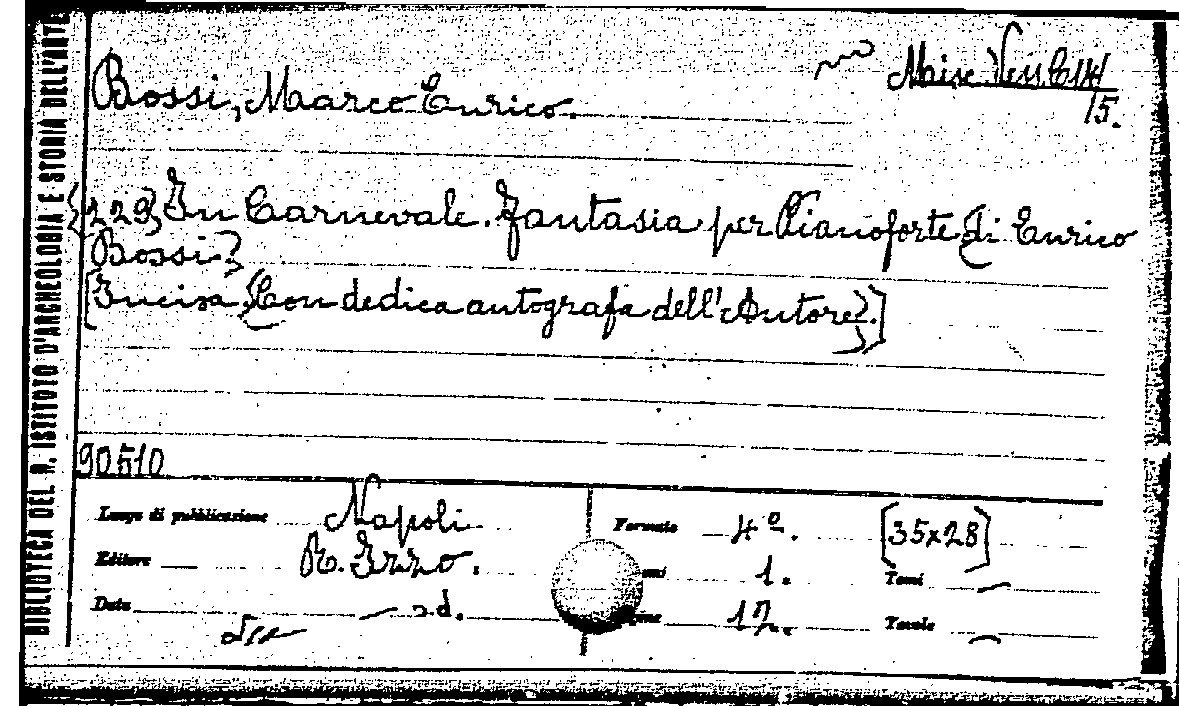 BIBLIOTECA DEL R. ISTITUTO D'ARCHEOLOGIA E STORIA DELL'ARTE
Misc. Vess. C 14/
15.
Bossi, Marco Enrico.
{129} In Carnevale. Fantasia per Pianoforte di Enrico
Bossi.
[Incisa. (Con dedica autografa dell'Autore).]
90510
Luogo di pubblicazione Napoli
Formato 4º. [35x28]
Editore R. Izzo.
1. Tomi —
Data — s.d.
17. Tavole —